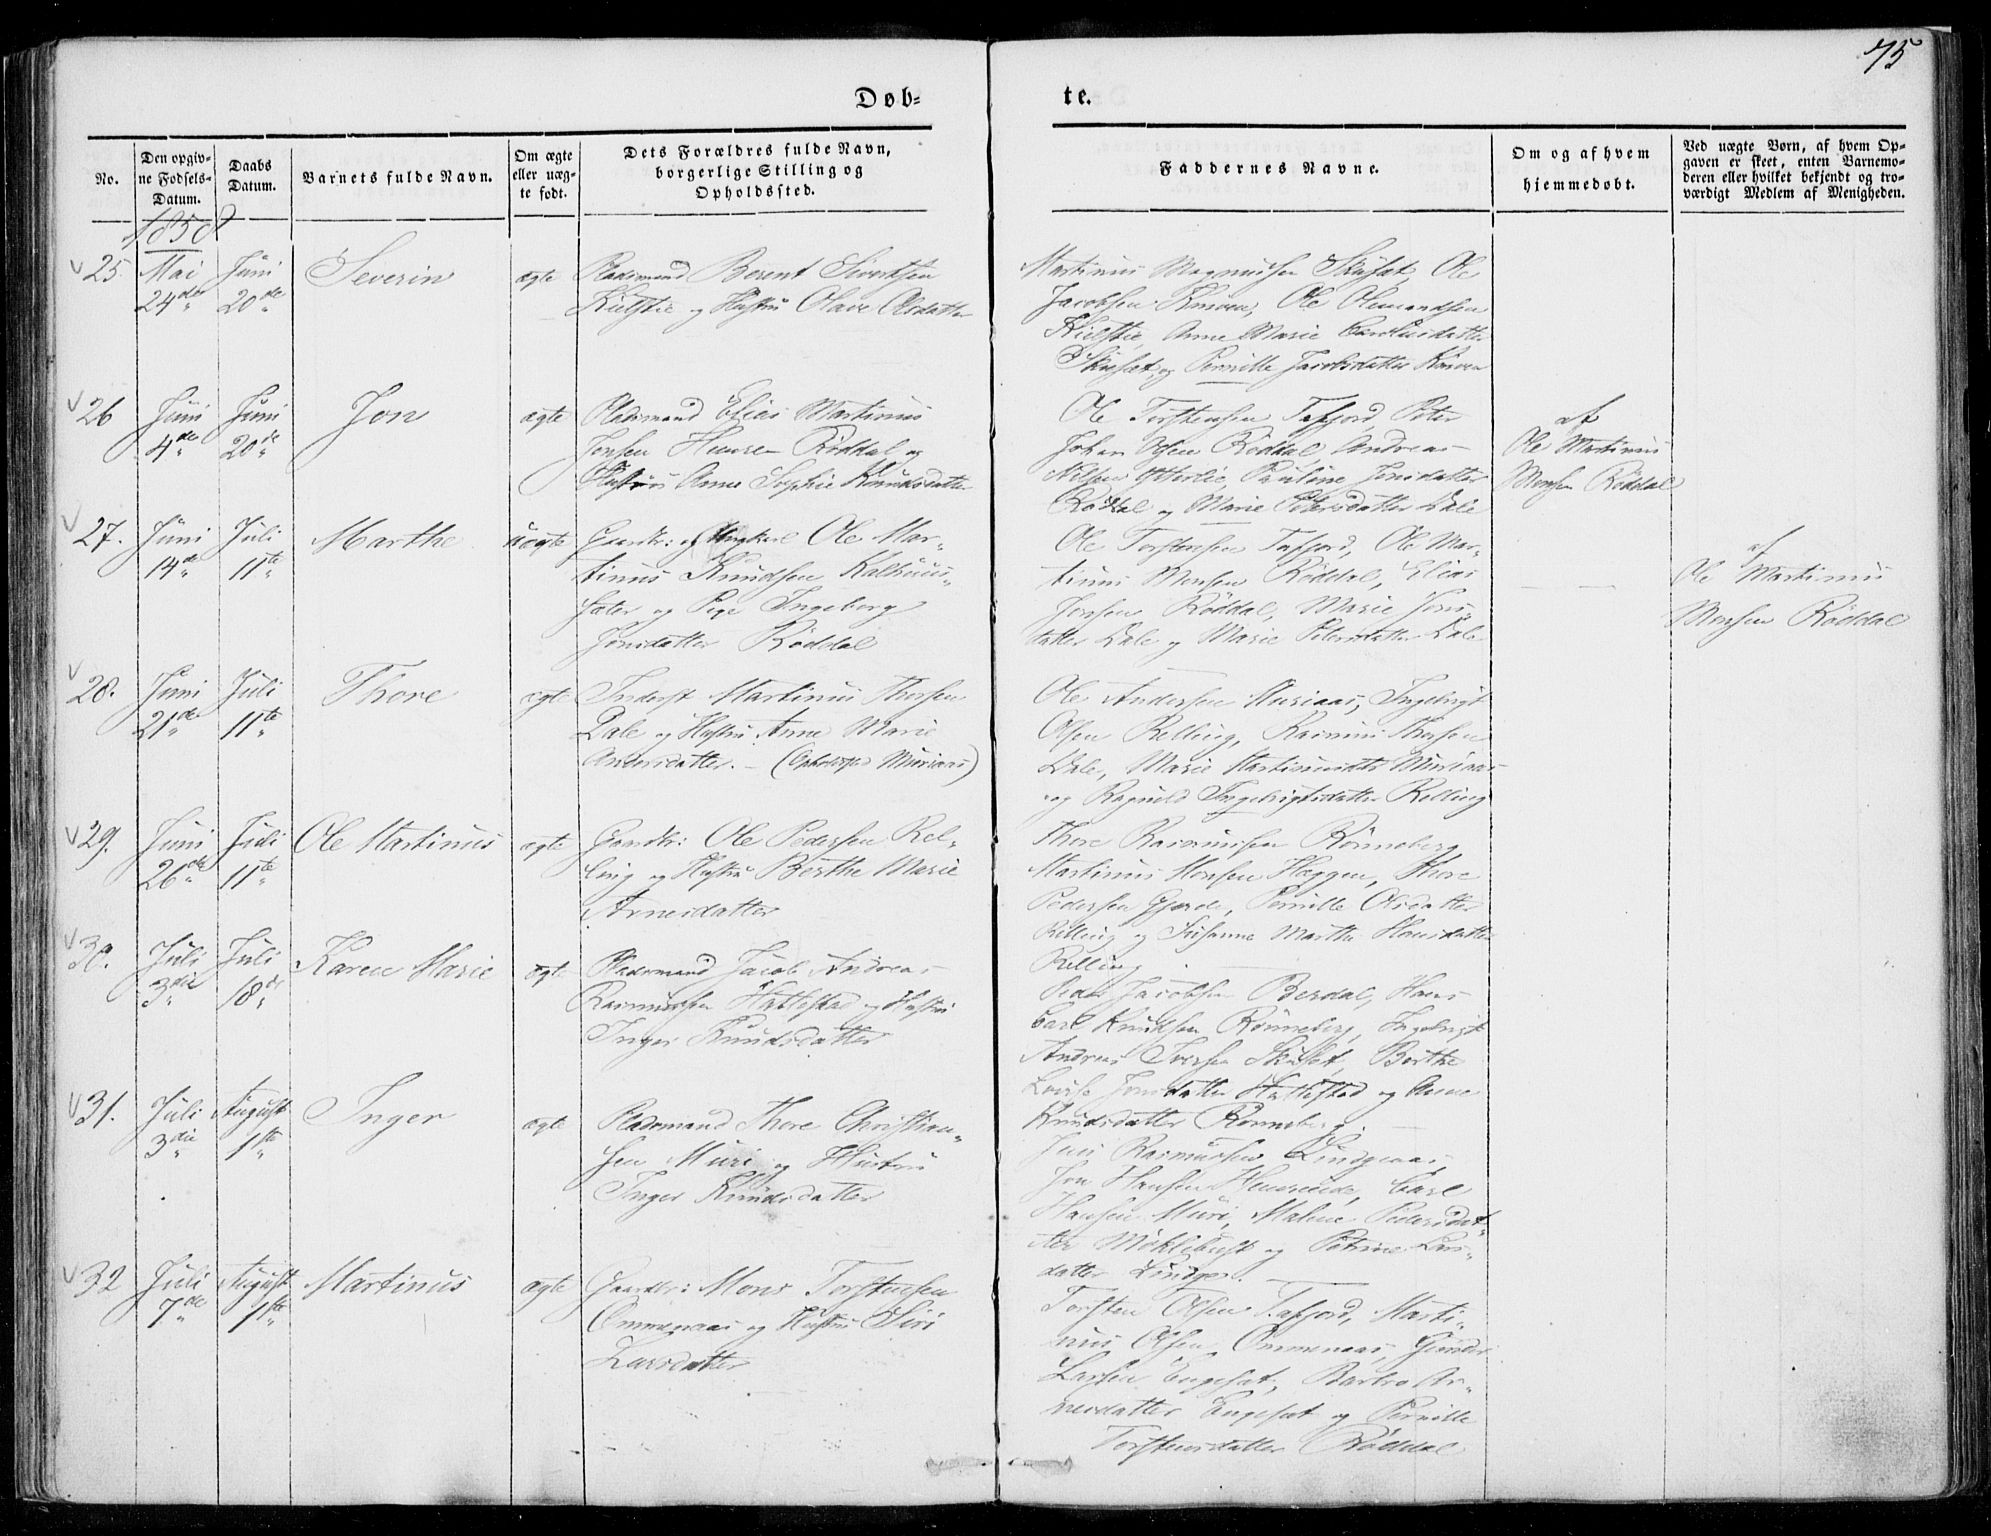 75
Døb-
te.
No.
Den opgiv-
ne Fødsels-
Datum.
Daabs
Datum.
Barnets fulde Navn.
Om ægte
eller uæg-
te født.
Dets Forældres fulde Navn,
borgerlige Stilling og
Opholdssted.
Faddernes Navne.
Om og af hvem
hjemmedøbt.
Ved uægte Børn, af hvem Op-
gaven er skeet, enten Barnemo-
deren eller hvilket bekjendt og tro-
værdigt Medlem af Menigheden.
1858
25. Mai Juni Severin ægte Pladsmand Berent Sivertsen
24de 20de og Hustru Olave Olsdatter
Martinus Magnussen Skuset, Ole
Jacobsen Ole
Anne Marie
Skuset, og Pernille Jacobsdatter
26 Juni Juni Jon ægte Pladsmand Elias Martinus
4de 20de Jonsen Røddal og
Hustru Anne Sophie Knudsdatter
Ole Torstensen Tafjord, Peter
Johan Olsen Røddal, Andreas
Nilsen Pauline Jonsdatter
Røddal og Marie Petersdatter Dale
af
Ole Martinus
Monsen Røddal
27. Juni Juli Marthe uægte Gaardbr: og Ungkarl Ole Mar-
14de 11te tinus Knudsen
og Pige Ingeborg
Jonsdatter Røddal
Ole Torstensen Tafjord, Ole Mar-
tinus Monsen Røddal, Elias
Jonsen Røddal, Marie Jons-
datter Dale og Marie Petersdatter Dale
af
Ole Martinus
Monsen Røddal
28. Juni Juli Thore ægte Inderst Martinus Thorsen
21de 11te Dale og Hustru Anne Marie
Andersdatter. - (Opholdssted Muriaas)
Ole Andersen Muriaas, Ingebrigt
Olsen Relling, Rasmus Thorsen
Dale, Marie Martinusdatter Muriaas
og Ragnild Ingebrigtsdatter Relling
29. Juni Juli Ole Martinus ægte Gaardbr: Ole Pedersen Rel-
26de 11te ling og Hustru Berthe Marie
Arnesdatter
Thore Rasmussen Rønneberg
Martinus Monsen Hæggen, Thore
Pedersen Gjerde, Pernille Olsdatter
Relling og Susanne Marthe Hansdatter
Relling
30. Juli Juli Karen Marie ægte Pladsmand Jacob Andreas
3die 18de Rasmussen Hattestad og Hustru
Inger Knudsdatter
Peder Jacobsen Berdal, Hans
Carl Knudsen Rønneberg, Ingebrigt
Andreas Iversen Skuset, Berthe
Lovise Jonsdatter Hattestad og Anne
Knudsdatter Rønneberg.
31. Juli August Inger ægte Pladsmand Thore Christian-
3die 1ste sen Muri og Hustru
Inger Knudsdatter
Jens Rasmussen Lingenaas
Jon Hansen Carl
Hansen Muri, Malene Pedersdat-
ter Møklebust og Petrine Lars-
datter Linge.
32 Juli August Martinus ægte Gaardbr: Mons Torstensen
7de 1ste Ommenaas og Hustru Siri
Larsdatter
Torsten Olsen Tafjord, Marti-
nus Olsen Ommenaas,
Larsen Engeset, Barbro Ar-
nesdatter Engeset og Pernille
Torstensdatter Røddal